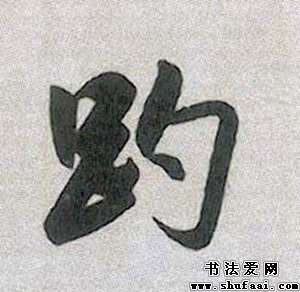 趵
书法爱网
www.shufaai.com